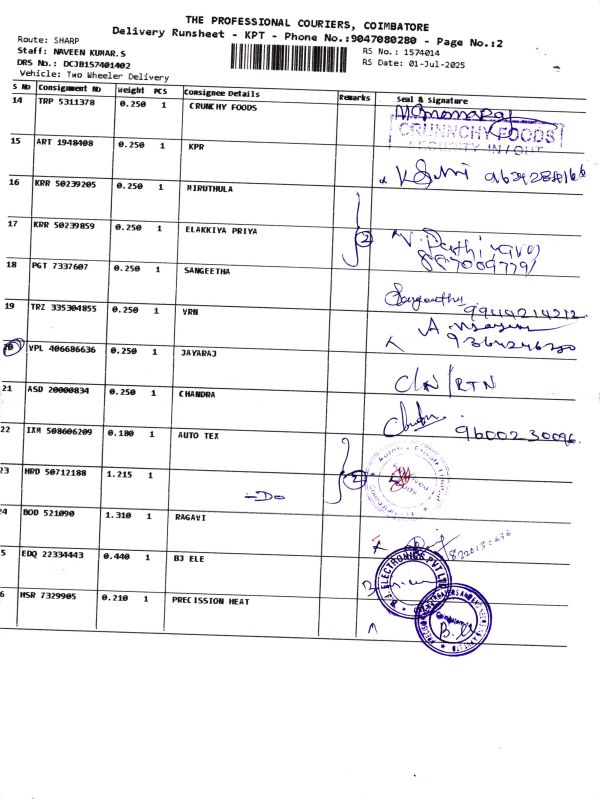 THE PROFESSIONAL COURIERS, COIMBATORE
Delivery Runsheet - KPT - Phone No.:9047080280 - Page No.:2
Route: SHARP
Staff: NAVEEN KUMAR.S
DRS No.: DCJB157401402
Vehicle: Two Wheeler Delivery
RS No.: 1574014
RS Date: 01-Jul-2025
S No Consignment No Weight PCS Consignee Details Remarks Seal & Signature
14 TRP 5311378 0.250 1 CRUNCHY FOODS
CRUNNCHY FOODS
SECURITY IN/OUT
15 ART 1948408 0.250 1 KPR
16 KRR 50239205 0.250 1 MIRUTHULA
17 KRR 50239859 0.250 1 ELAKKIYA PRIYA 2
18 PGT 7337607 0.250 1 SANGEETHA
Sangeetha 9944214212
19 TRZ 335304855 0.250 1 VRN
20 VPL 406686636 0.250 1 JAYARAJ
C/N/RTN
21 ASD 20000834 0.250 1 CHANDRA
9600230096
22 IXM 508606209 0.180 1 AUTO TEX
23 HRD 50712188 1.215 1 -Do 2
24 BOD 521090 1.310 1 RAGAVI
5 EDQ 22334443 0.440 1 BJ ELE
B.J. ELECTRONICS PVT LTD
6 HSR 7329905 0.210 1 PRECISSION HEAT